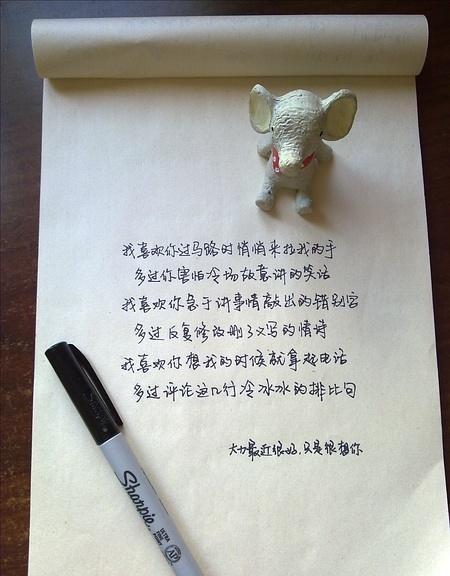 我喜欢你过马路时悄悄来拉我的手
多过你害怕冷场故意讲的笑话
我喜欢你急于讲事情敲出的错别字
多过反复修改删了又写的情诗
我喜欢你想我的时候就拿起电话
多过评论这几行冷冰冰的排比句
大力最近很好,只是很想你
Sharpie
ULTRA
FINE
POINT
AP